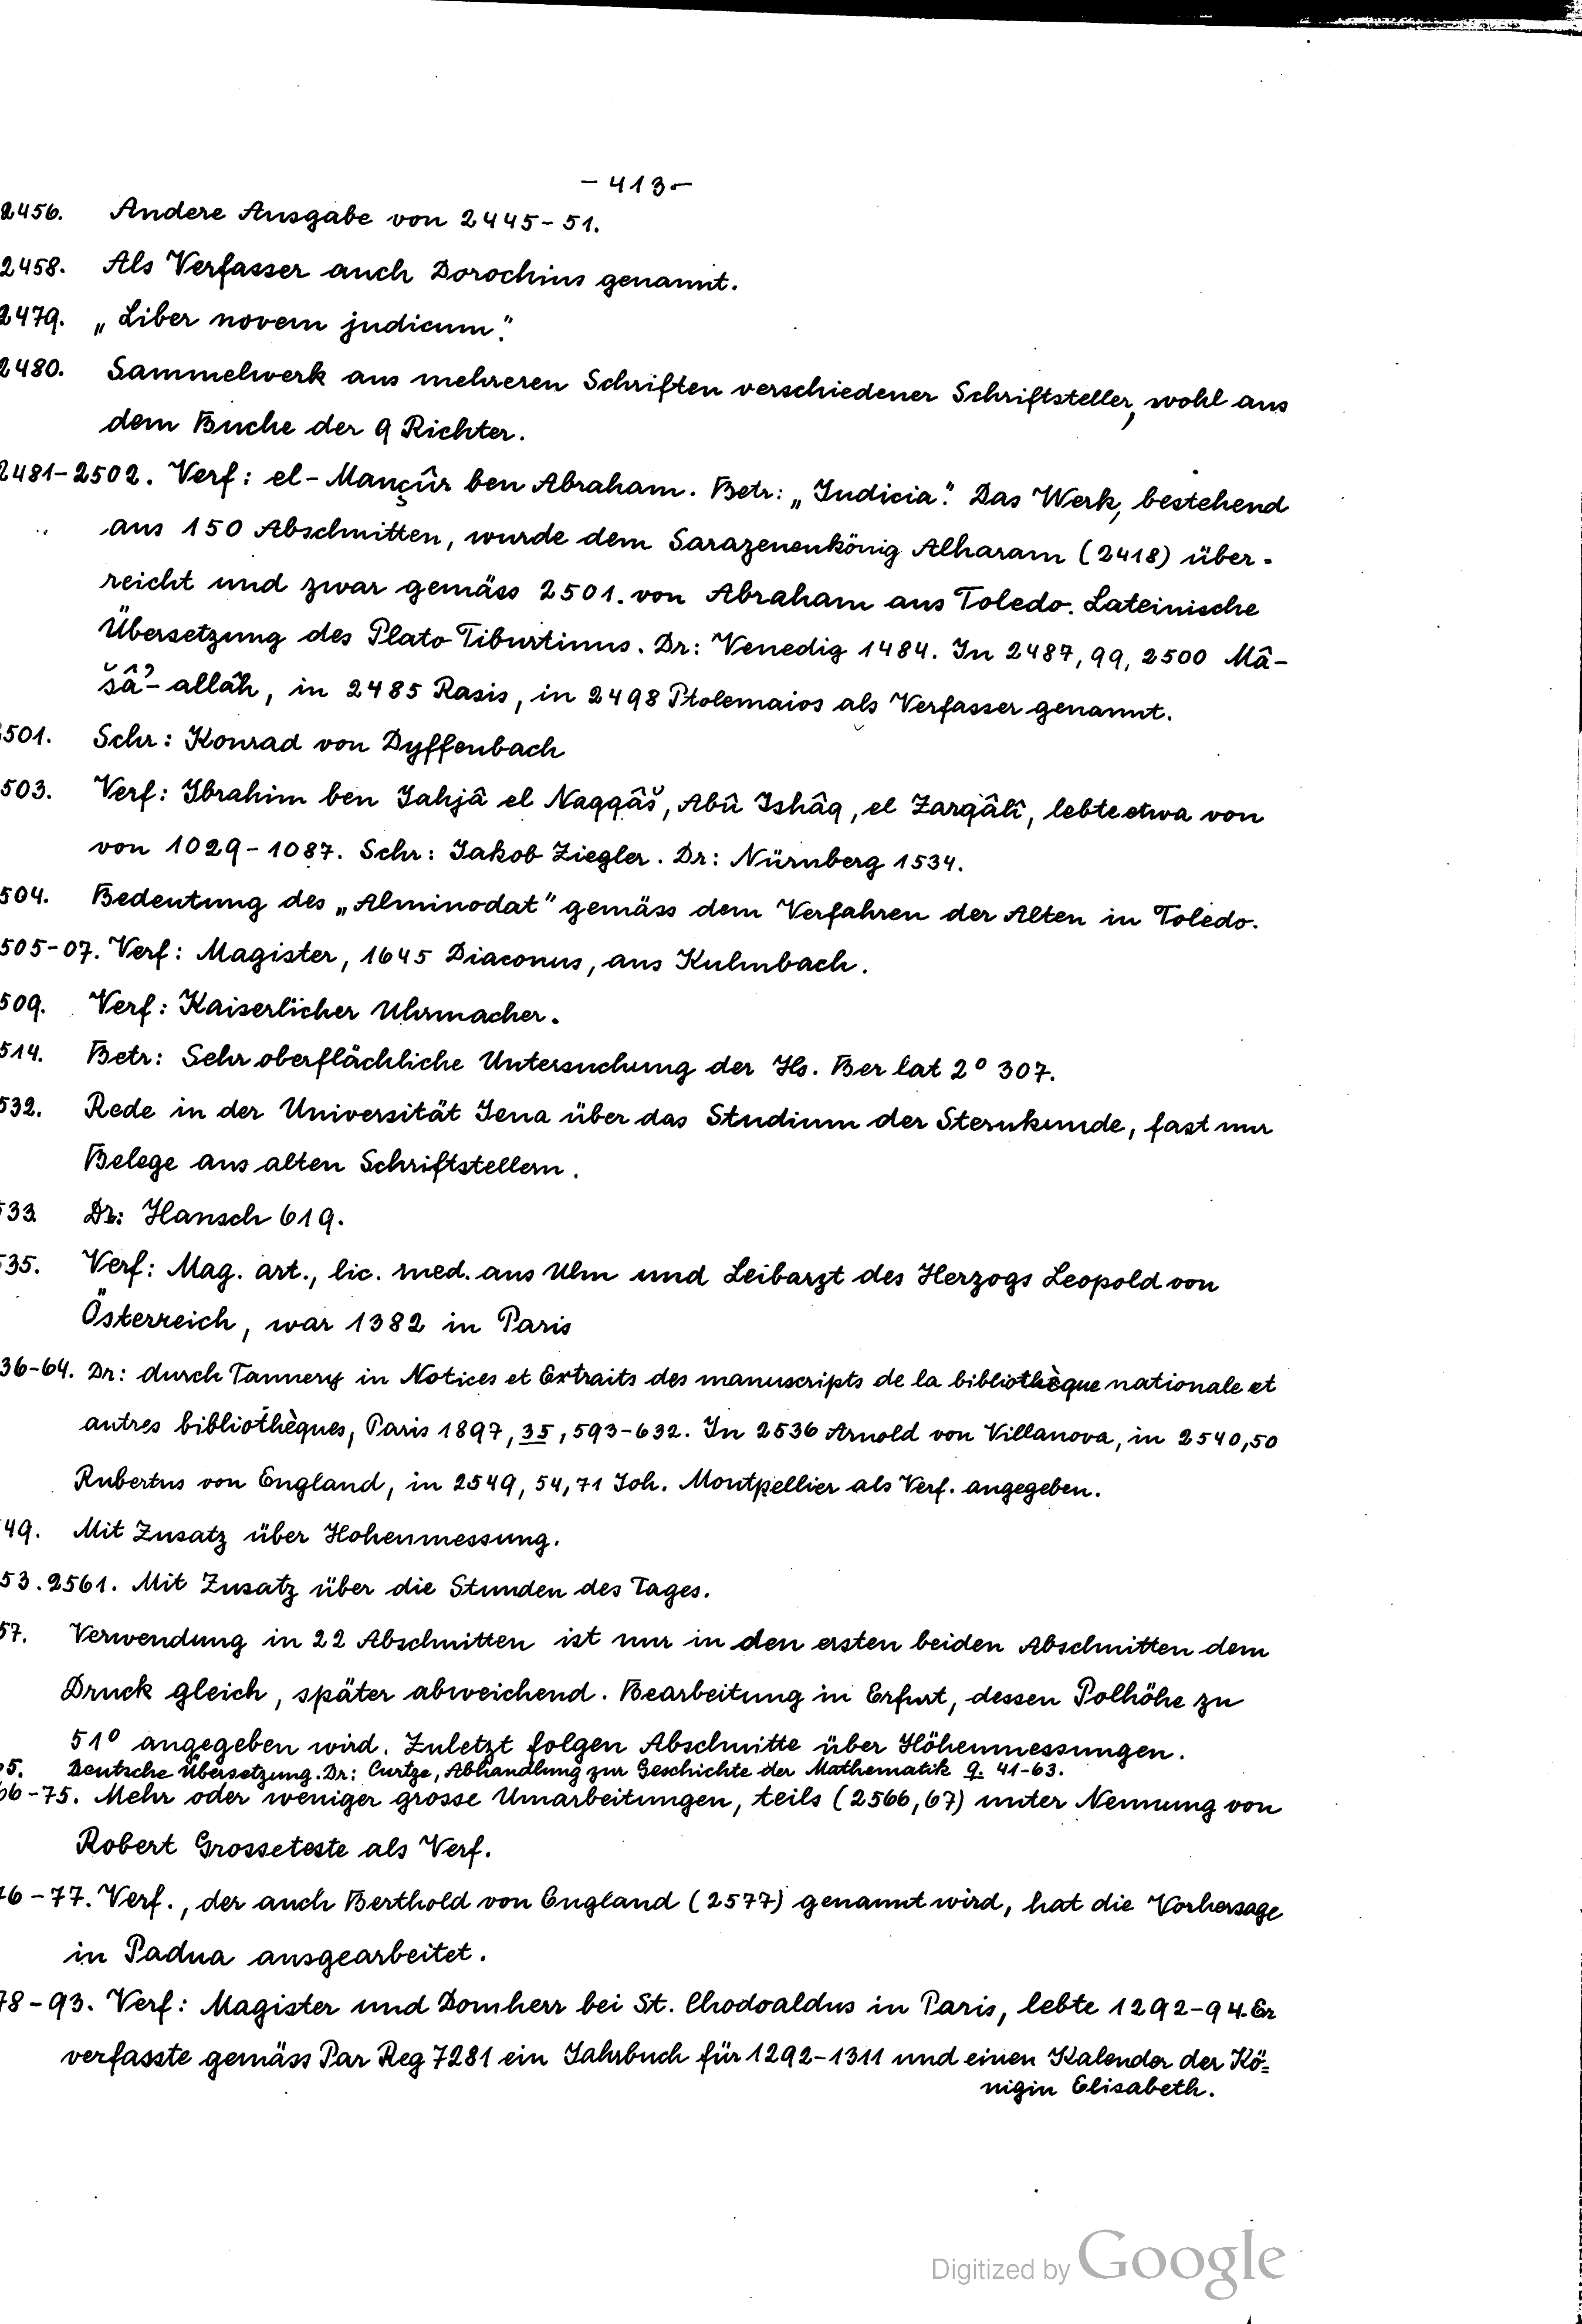 - 413 -
2456. Andere Ausgabe von 2445-51.
2458. Als Verfasser auch Dorochius genannt.
2479. „Liber novem judicum".
2480. Sammelwerk aus mehreren Schriften verschiedener Schriftsteller, wohl aus
dem Buche der 9 Richter.
2481-2502. Verf: el-Mançûr ben Abraham. Betr: „Judicia". Das Werk, bestehend
aus 150 Abschnitten, wurde dem Sarazenenkönig Alharam (2418) über-
reicht und zwar gemäss 2501. von Abraham aus Toledo. Lateinische
Übersetzung des Plato Tiburtinus. Dr: Venedig 1484. In 2487, 99, 2500 Mâ-
šâ'-allâh, in 2485 Rasis, in 2498 Ptolemaios als Verfasser genannt.
501. Schr: Konrad von Dyffenbach
503. Verf: Ibrahim ben Jahjâ el Naqqâš, Abû Ishâq, el Zarqâlî, lebte etwa von
von 1029-1087. Schr: Jakob Ziegler. Dr: Nürnberg 1534.
504. Bedeutung des „Alminodat" gemäss dem Verfahren der Alten in Toledo.
505-07. Verf: Magister, 1645 Diaconus, aus Kulmbach.
509. Verf: Kaiserlicher Uhrmacher.
514. Betr: Sehr oberflächliche Untersuchung der Hs. Ber lat 2° 307.
532. Rede in der Universität Jena über das Studium der Sternkunde, fast nur
Belege aus alten Schriftstellern.
33 Dr: Hansch 619.
35. Verf: Mag. art., lic. med. aus Ulm und Leibarzt des Herzogs Leopold von
Österreich, war 1382 in Paris
36-64. Dr: durch Tannery in Notices et Extraits des manuscripts de la bibliothèque nationale et
autres bibliothèques, Paris 1897, 35, 593-632. In 2536 Arnold von Villanova, in 2540,50
Rubertus von England, in 2549, 54, 71 Joh. Montpellier als Verf. angegeben.
49. Mit Zusatz über Hohenmessung.
53. 2561. Mit Zusatz über die Stunden des Tages.
57. Verwendung in 22 Abschnitten ist nur in den ersten beiden Abschnitten dem
Druck gleich, später abweichend. Bearbeitung in Erfurt, dessen Polhöhe zu
51° angegeben wird. Zuletzt folgen Abschnitte über Höhenmessungen.
5. Deutsche Übersetzung. Dr: Curtze, Abhandlung zur Geschichte der Mathematik 9. 41-63.
66-75. Mehr oder weniger grosse Umarbeitungen, teils (2566, 67) unter Nennung von
Robert Grosseteste als Verf.
76-77. Verf., der auch Berthold von England (2577) genannt wird, hat die Vorhersage
in Padua ausgearbeitet.
78-93. Verf: Magister und Domherr bei St. Chodoaldus in Paris, lebte 1292-94. Er
verfasste gemäss Par Reg 7281 ein Jahrbuch für 1292-1311 und einen Kalender der Kö=
nigin Elisabeth.
Digitized by Google